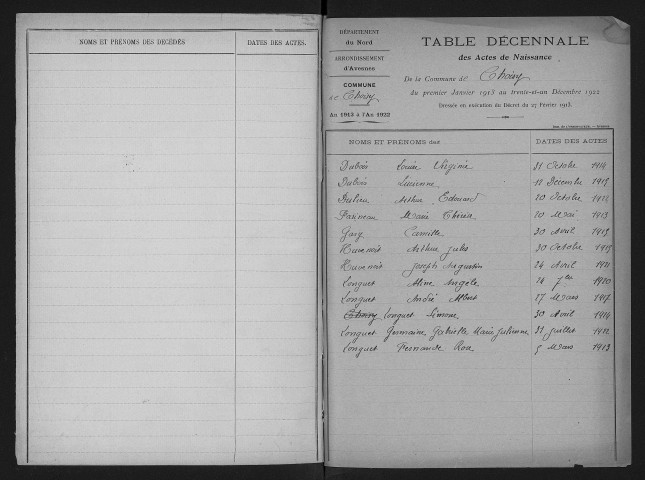 NOMS ET PRÉNOMS DES DÉCÉDÉS DATES DES ACTES.
DÉPARTEMENT
du Nord
ARRONDISSEMENT
d'Avesnes
COMMUNE
de Choisy
An 1913 à l'An 1922
TABLE DÉCENNALE
des Actes de Naissance
De la Commune de Choisy
du premier Janvier 1913 au trente-et-un Décembre 1922
Dressée en exécution du Décret du 27 Février 1913.
NOMS ET PRÉNOMS des DATES DES ACTES
Dubois Louise Virginie 21 Octobre 1914
Dubois Lucienne 12 Décembre 1919
Dulieu Arthur Edouard 20 Octobre
Farineau Marie Thérèse 20 Mai 1913
Gary Camille 30 Avril 1919
Huvenoit Arthur Jules 30 Octobre 1919
Huvenoit Joseph Augustin 24 Avril 1921
Longuet Aline Angèle 7bre 1920
Longuet André Albert 27 Mars 1917
Longuet Simone 30 Avril 1914
Longuet Germaine Gabrielle Marie Julienne 31 Juillet
Longuet Fernande Rosa 5 Mars 1913